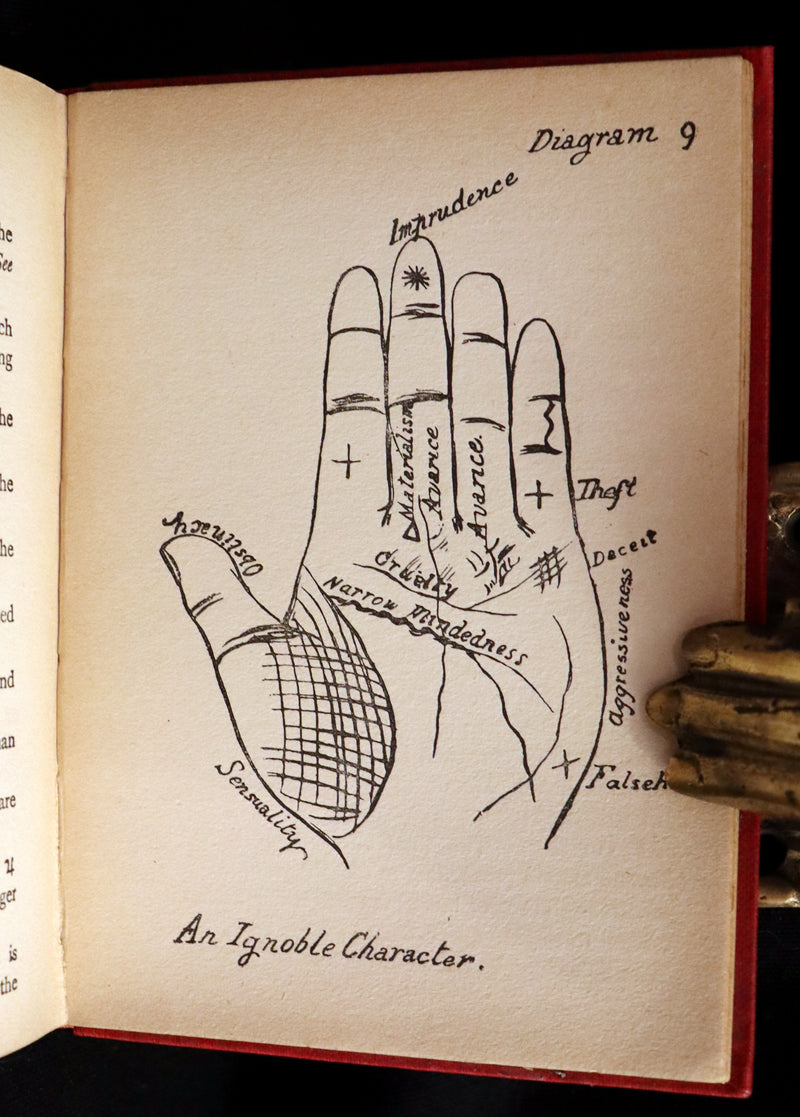 Diagram 9
Imprudence
Materialism
Avarice
Avarice.
Theft
Obstinacy
Deceit
Cruelty
Narrow Mindedness
Aggressiveness
Sensuality
An Ignoble Character.
he
See
ch
ng
he
he
he
ed
nd
an
are
4
ger
is
the